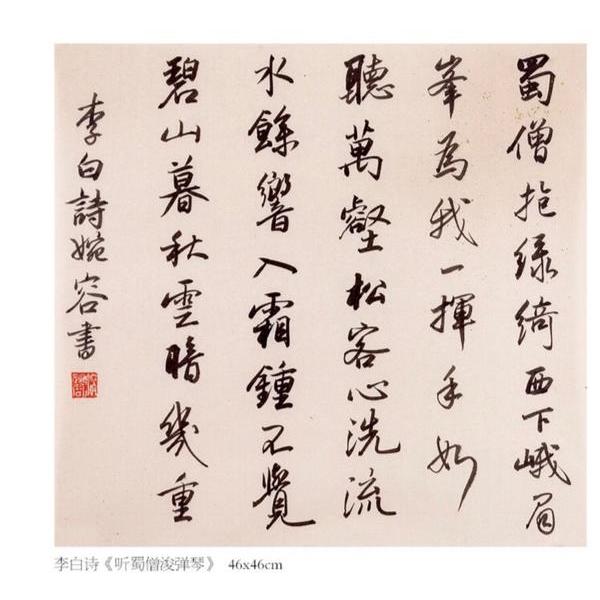 蜀僧抱綠綺西下峨眉
峯為我一揮手如
聽萬壑松客心洗流
水餘響入霜鍾不覺
碧山暮秋雲暗幾重
李白詩婉容書
李白诗《听蜀僧浚弹琴》 46x46cm